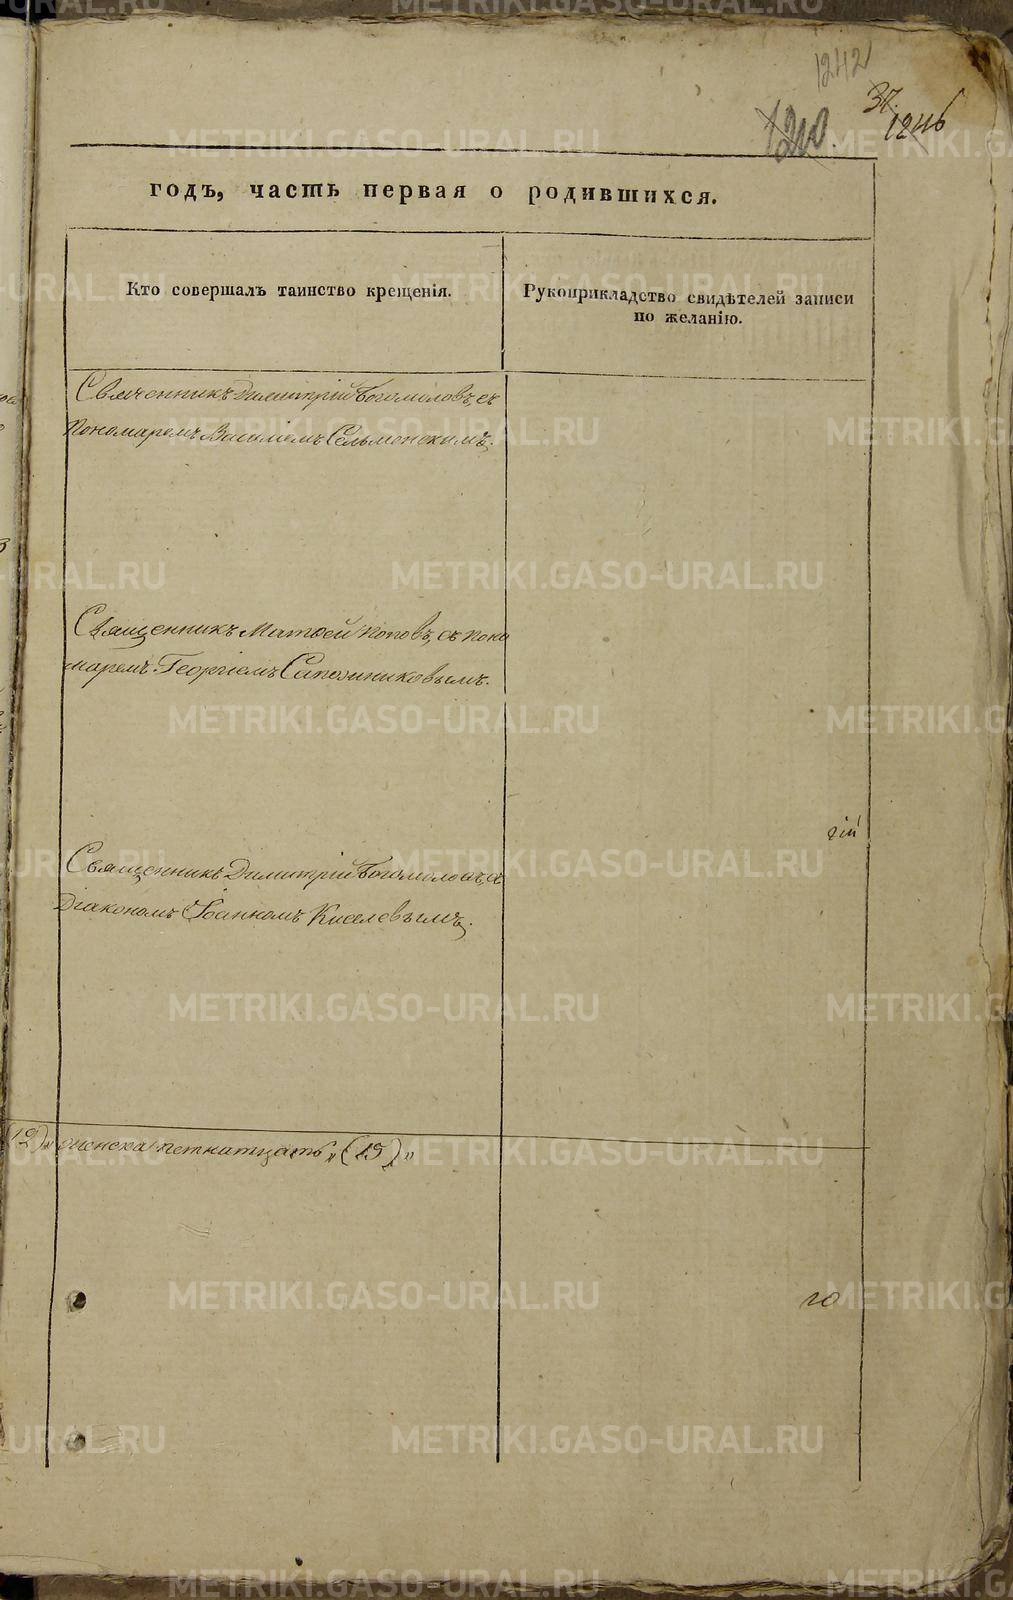 1242
37.
1210
1246
годъ, часть первая о родившихся.
Кто совершалъ таинство крещенія.
Рукоприкладство свидѣтелей записи
по желанію.
Священникъ Димитрій Богомоловъ, съ
Пономаремъ Василіемъ Сельменскимъ.
Священникъ Матѳей Поповъ, съ Поно
маремъ Георгіемъ Сапожниковымъ.
гій
Священникъ Димитрій Богомоловъ, съ
Діакономъ Іоанномъ Киселевымъ.
(12) „ женска пятнатцать „ (15) „
го
METRIKI.GASO-URAL.RU